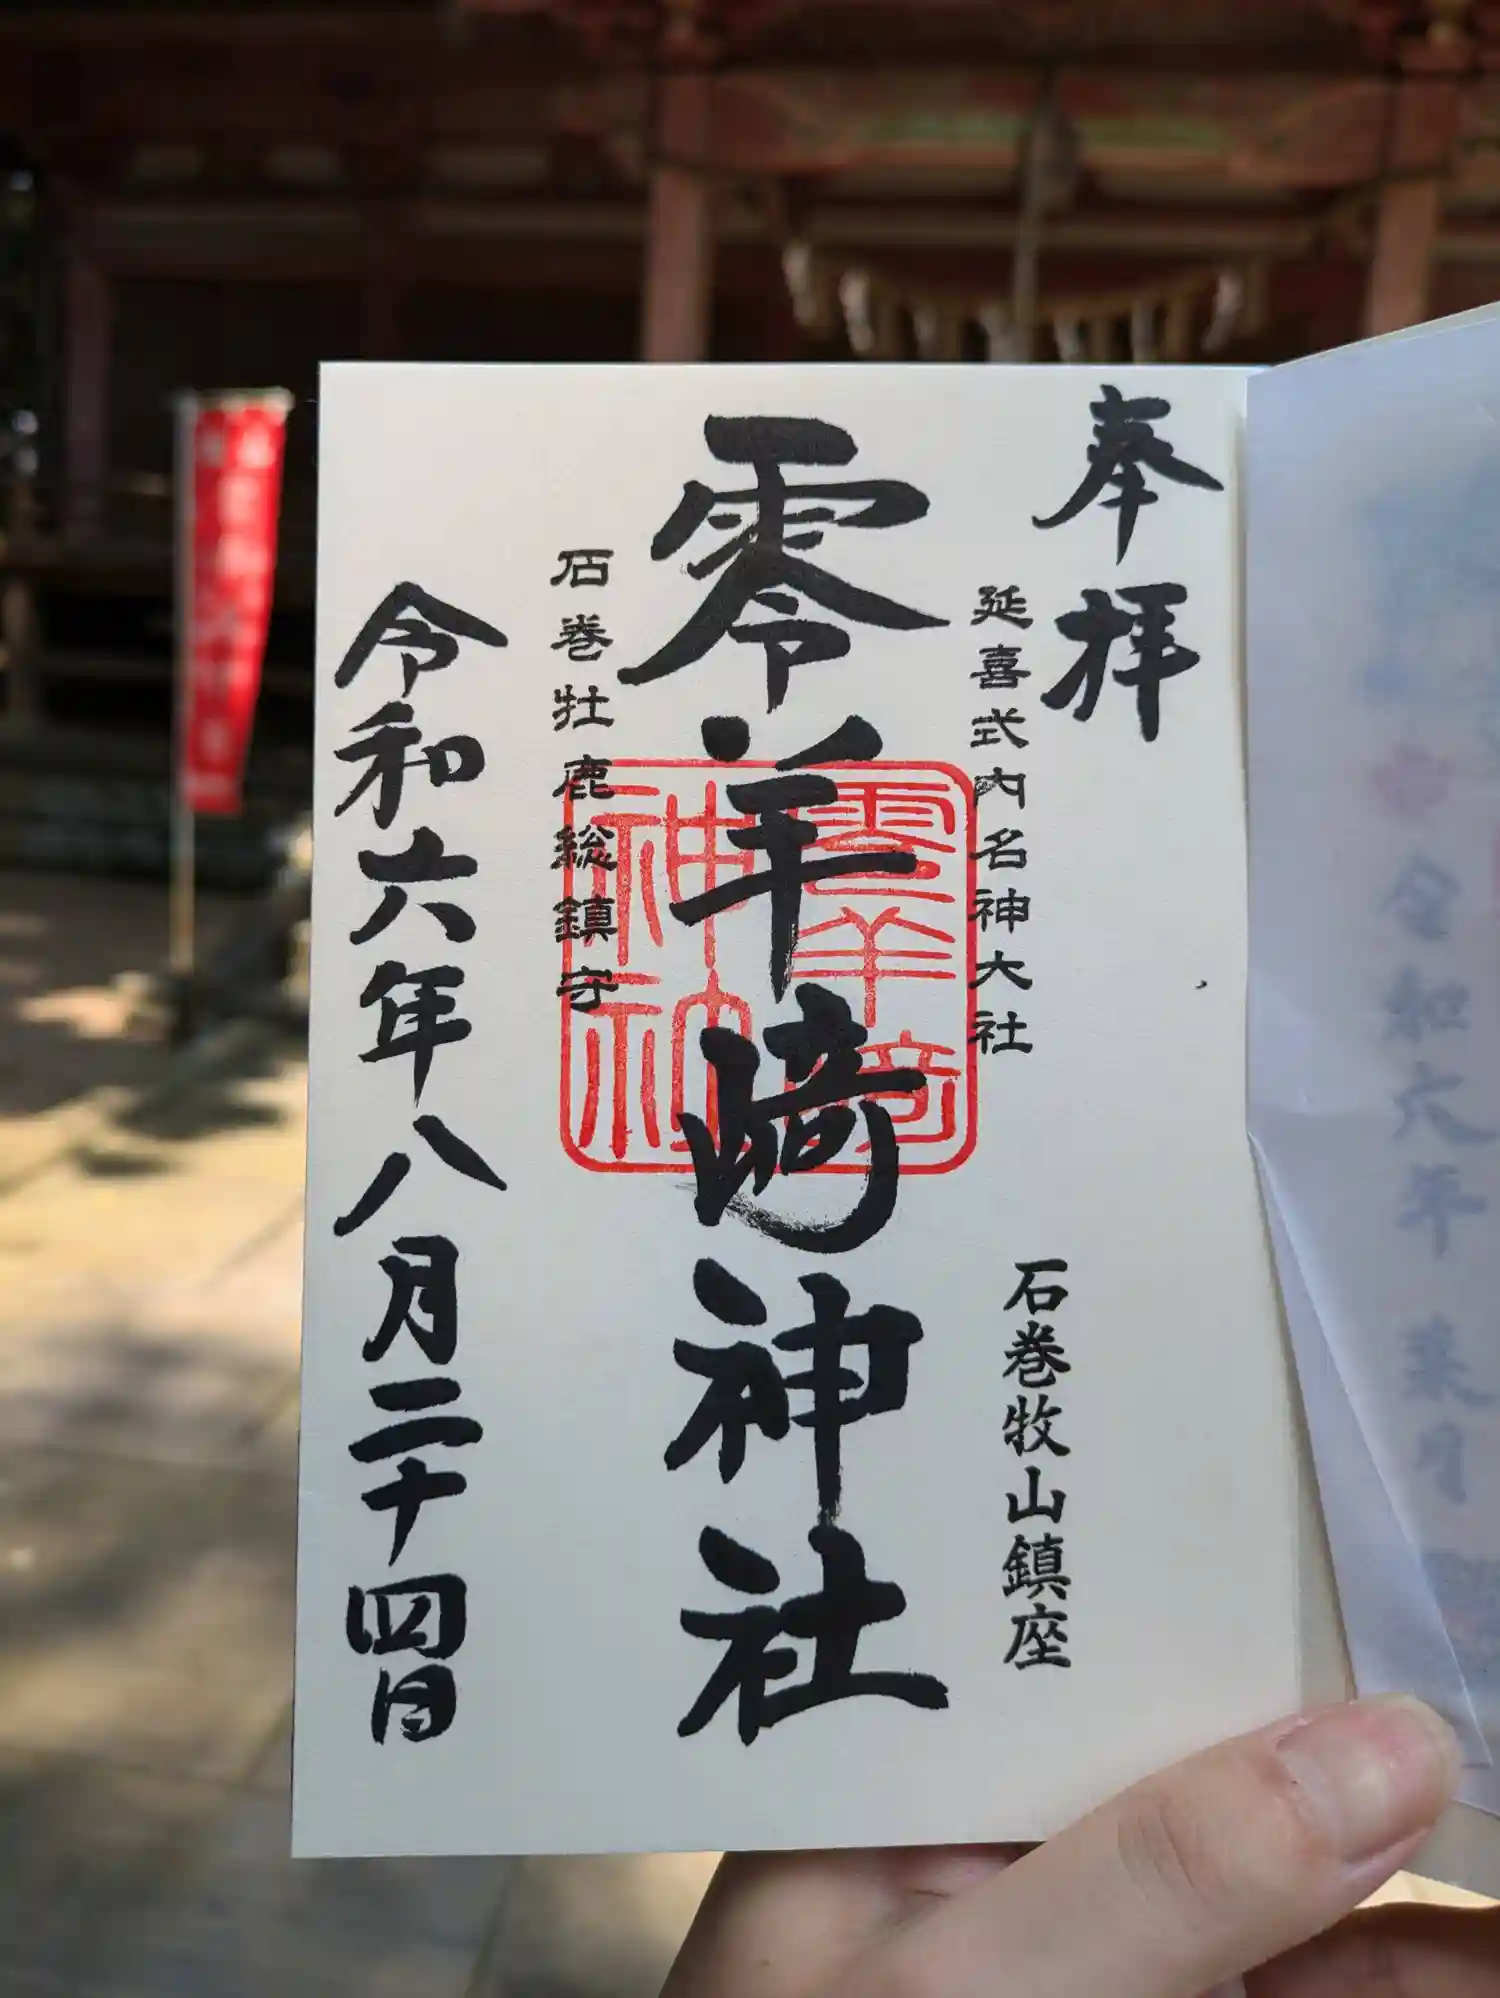 奉拝
延喜式内名神大社
石巻牧山鎮座
零羊崎神社
零羊崎
神社
石巻牡鹿総鎮守
令和六年八月二十四日
令和六年